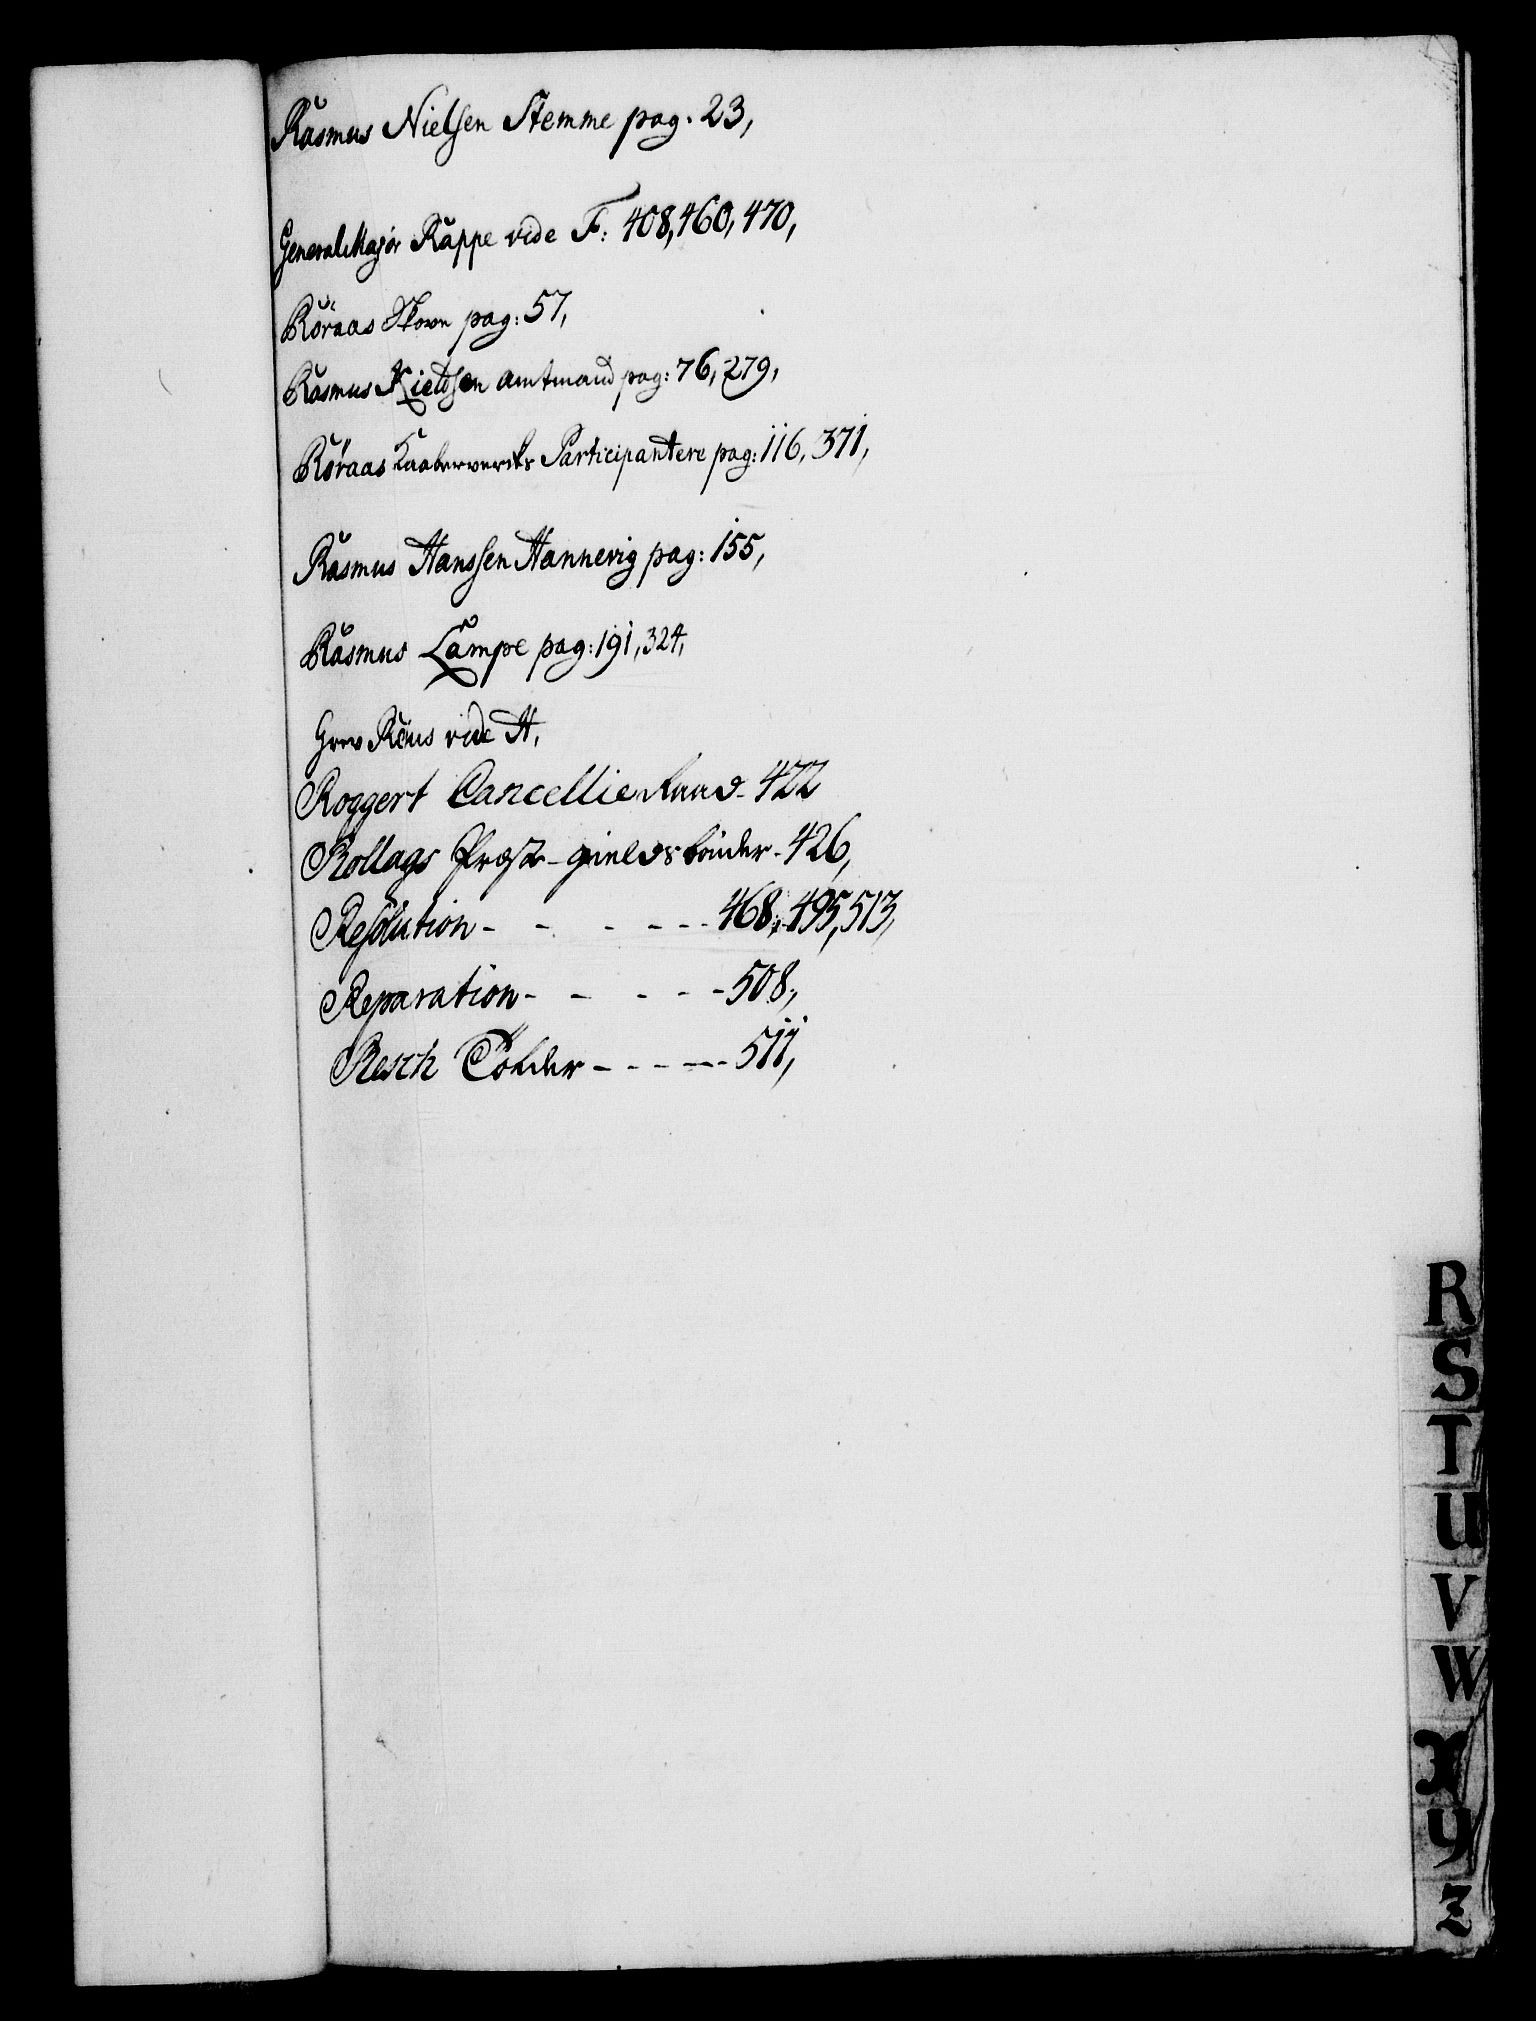 Rasmus Nielsen Stemme pag. 23,
General Major Kappe vide F: 408, 460, 470,
Röraas Skove pag: 57,
Rasmus Kieldsen Amtmand pag: 76, 279,
Röraas Kaaberwerks Participantere pag: 116, 371,
Rasmus Hanssen Hannevig pag: 155,
Rasmus Lampe pag: 191, 324,
Grev Reus vide H,
Roggert Cancellie Raad - 422
Rollags Præste-gields bönder - 426,
Resolution - - - - - - 468, 495, 513,
Reparation - - - - - - 508,
Resch Tolder - - - - - - 511,
R
S
T
U
V
W
X
Y
Z